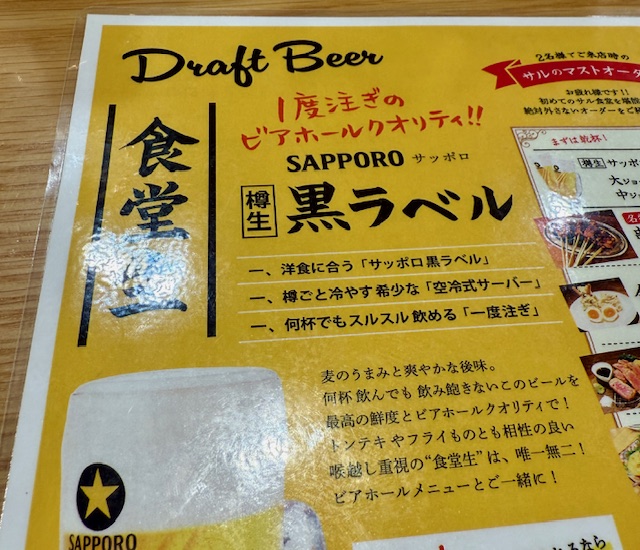 Draft Beer
1度注ぎの
ビアホールクオリティ!!
SAPPORO サッポロ
樽生 黒ラベル
食堂生
一、洋食に合う「サッポロ黒ラベル」
一、樽ごと冷やす希少な「空冷式サーバー」
一、何杯でもスルスル飲める「一度注ぎ」
麦のうまみと爽やかな後味。
何杯飲んでも飲み飽きないこのビールを
最高の鮮度とビアホールクオリティで!
トンテキやフライものとも相性の良い
喉越し重視の"食堂生"は、唯一無二!
ビアホールメニューとご一緒に!
SAPPORO
2名様でご来店時の
サルのマストオーダ
お疲れ様です!!
初めてのサル食堂を
絶対外さないオーダーをご
まずは乾杯!
樽生 サッポ
大ジョ
中ジ